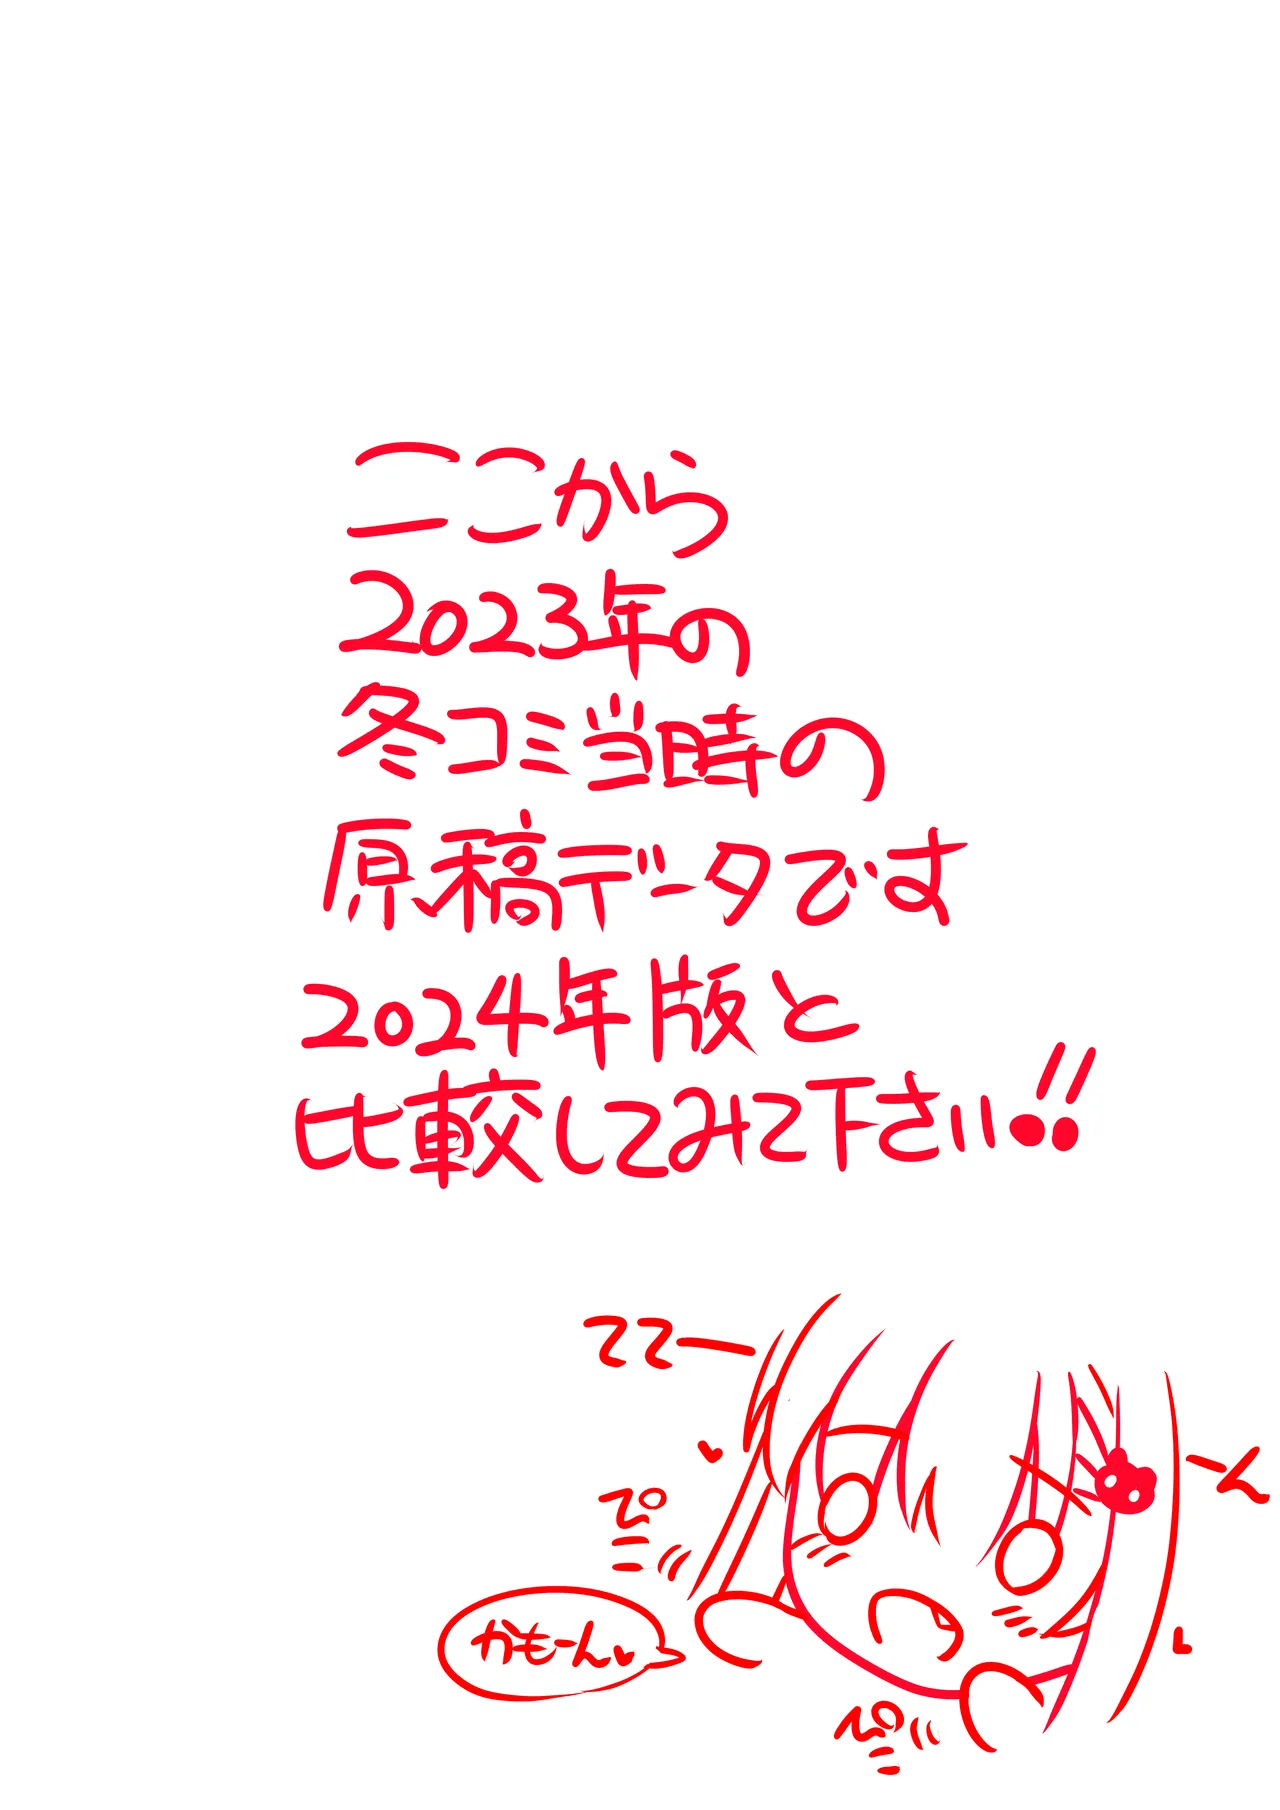 ここから
2023年の
冬コミ当時の
原稿データです
2024年版と
比較してみて下さい!!
ててーーん
ぴこ
かもーん♥
ぴこ